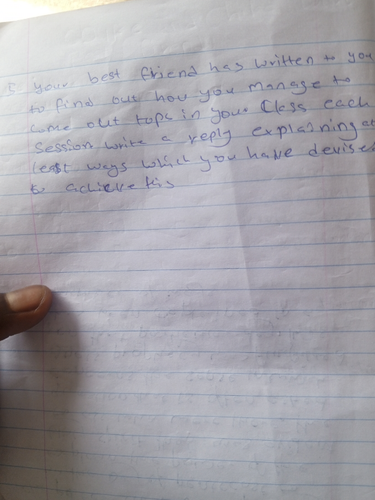 I your best friend has written to you
to find out how you manage to
come out tops in your Class each
Session write a reply explaining at
least ways which you have devised
to achieve this